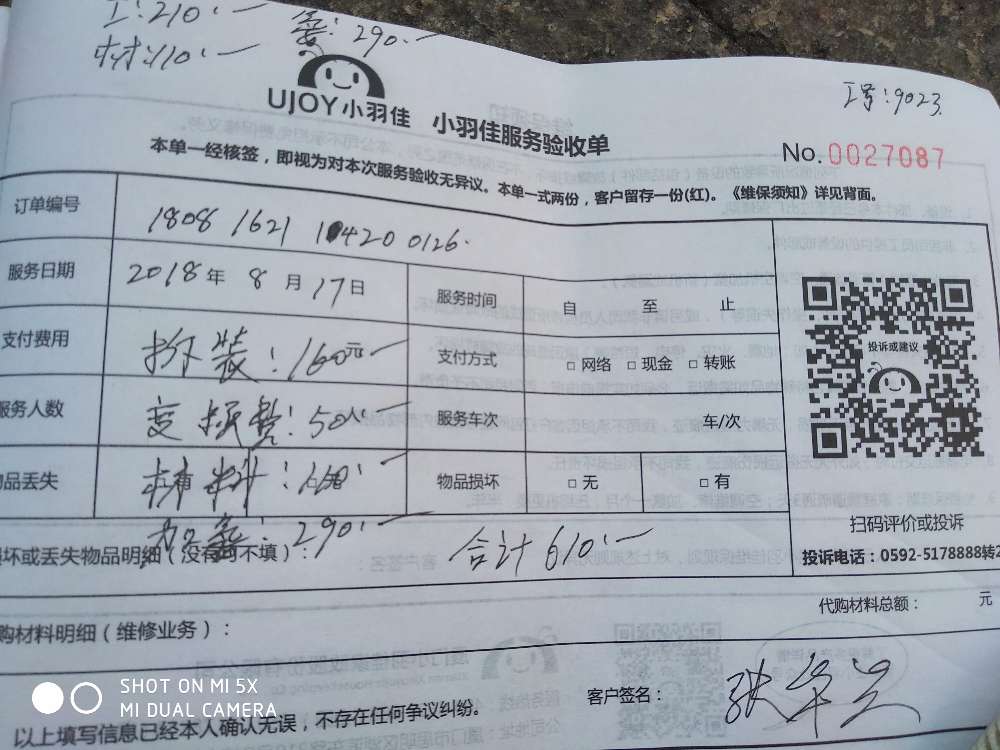 工:210.— 氨:290.—
材料110.—
工号:9023.
UJOY小羽佳 小羽佳服务验收单
No.0027087
本单一经核签，即视为对本次服务验收无异议。本单一式两份，客户留存一份(红)。《维保须知》详见背面。
订单编号 1808 1621 10420 0126.
服务日期 2018年8月17日 服务时间 自 至 止
支付费用 拆装:160元.— 支付方式 □网络 □现金 □转账
服务人数 变损费:50人.— 服务车次 车/次
物品丢失 材料:110.— 物品损坏 □无 □有
加氨:290.—
损坏或丢失物品明细（没有可不填）: 合计610.—
投诉或建议
扫码评价或投诉
投诉电话：0592-5178888转2
代购材料总额： 元
购材料明细（维修业务）：
客户签名：
以上填写信息已经本人确认无误，不存在任何争议纠纷。
SHOT ON MI 5X
MI DUAL CAMERA